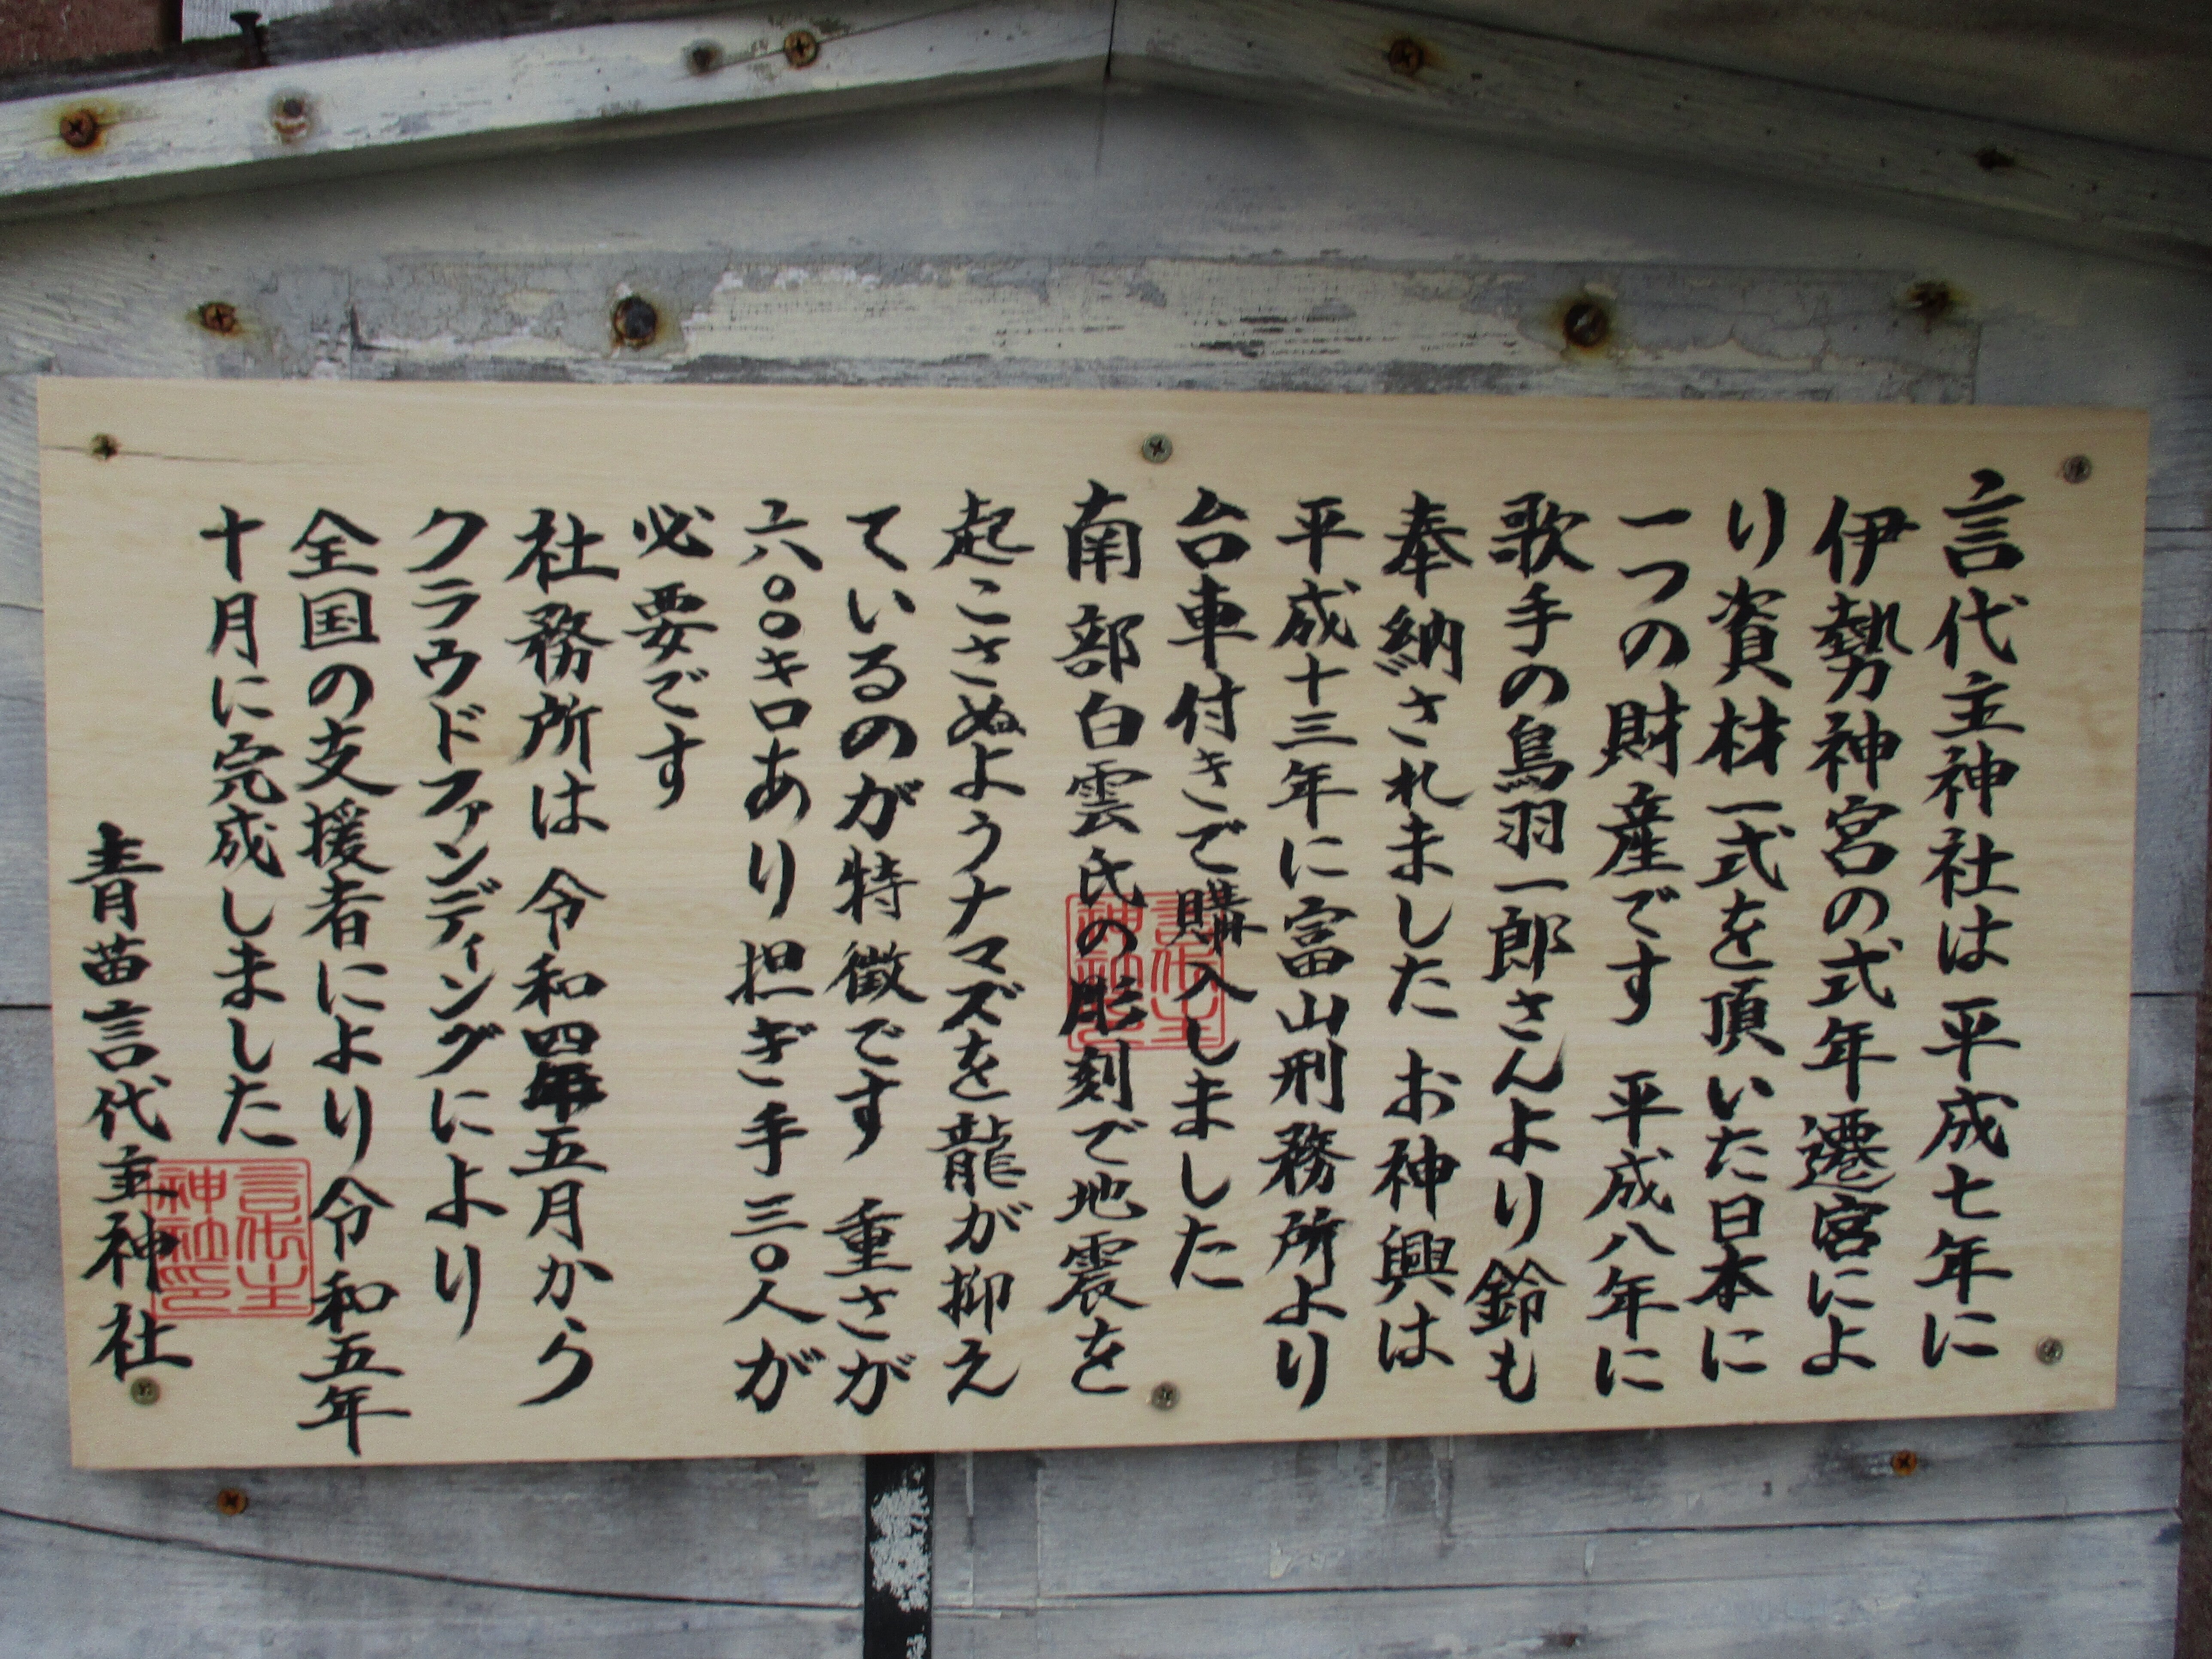 言代主神社は平成七年に
伊勢神宮の式年遷宮によ
り資材一式を頂いた日本に
一つの財産です 平成八年に
歌手の鳥羽一郎さんより鈴も
奉納されました お神興は
平成十三年に富山刑務所より
台車付きで購入しました
南部白雲氏の彫刻で地震を
起こさぬようナマズを龍が抑え
ているのが特徴です 重さが
六〇〇キロあり担ぎ手三〇人が
必要です
社務所は 令和四年五月から
クラウドファンディングにより
全国の支援者により令和五年
十月に完成しました
青苗言代主神社
言代主
神社印
言代主
神社印